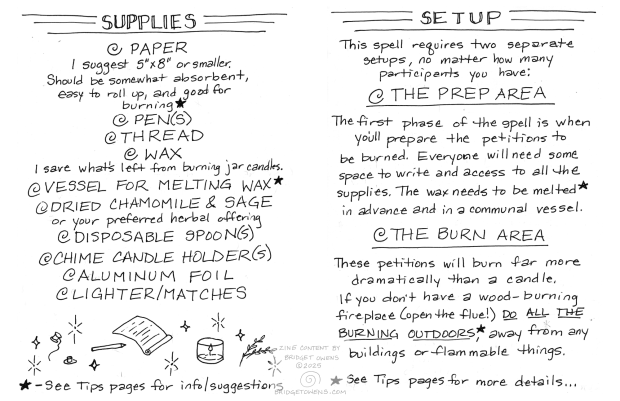 SUPPLIES
@ PAPER
I suggest 5"x8" or smaller.
Should be somewhat absorbent,
easy to roll up, and good for
burning★
@ PEN(S)
@ THREAD
@ WAX
I save what's left from burning jar candles.
@ VESSEL FOR MELTING WAX★
@ DRIED CHAMOMILE & SAGE
or your preferred herbal offering
@ DISPOSABLE SPOON(S)
@ CHIME CANDLE HOLDER(S)
@ ALUMINUM FOIL
@ LIGHTER/MATCHES
★ - See Tips pages for info/suggestions
SETUP
This spell requires two separate
setups, no matter how many
participants you have:
@ THE PREP AREA
The first phase of the spell is when
you'll prepare the petitions to
be burned. Everyone will need some
space to write and access to all the
supplies. The wax needs to be melted★
in advance and in a communal vessel.
@ THE BURN AREA
These petitions will burn far more
dramatically than a candle.
If you don't have a wood-burning
fireplace (open the flue!) DO ALL THE
BURNING OUTDOORS,★ away from any
buildings or flammable things.
★ See Tips pages for more details...
ZINE CONTENT BY
BRIDGET OWENS
©2025
BRIDGETOWENS.COM